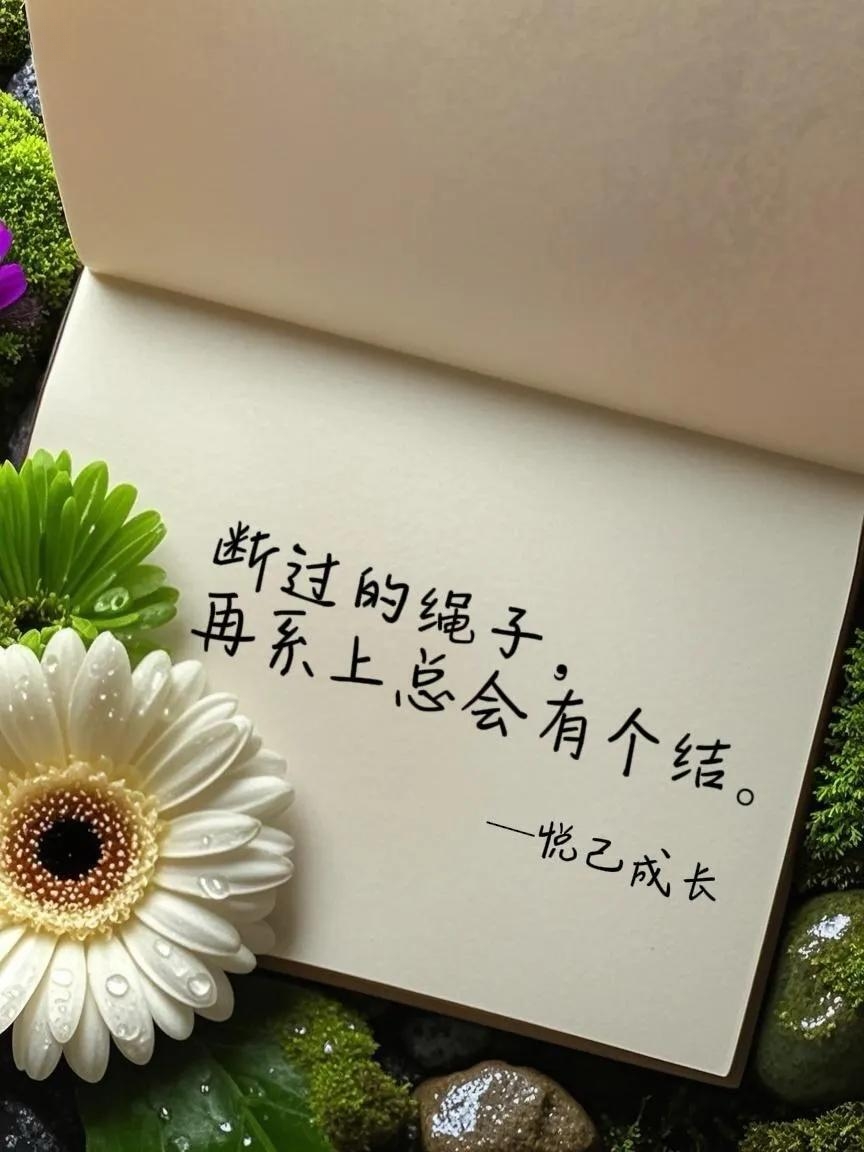 断过的绳子，
再系上总会有个结。
—悦己成长